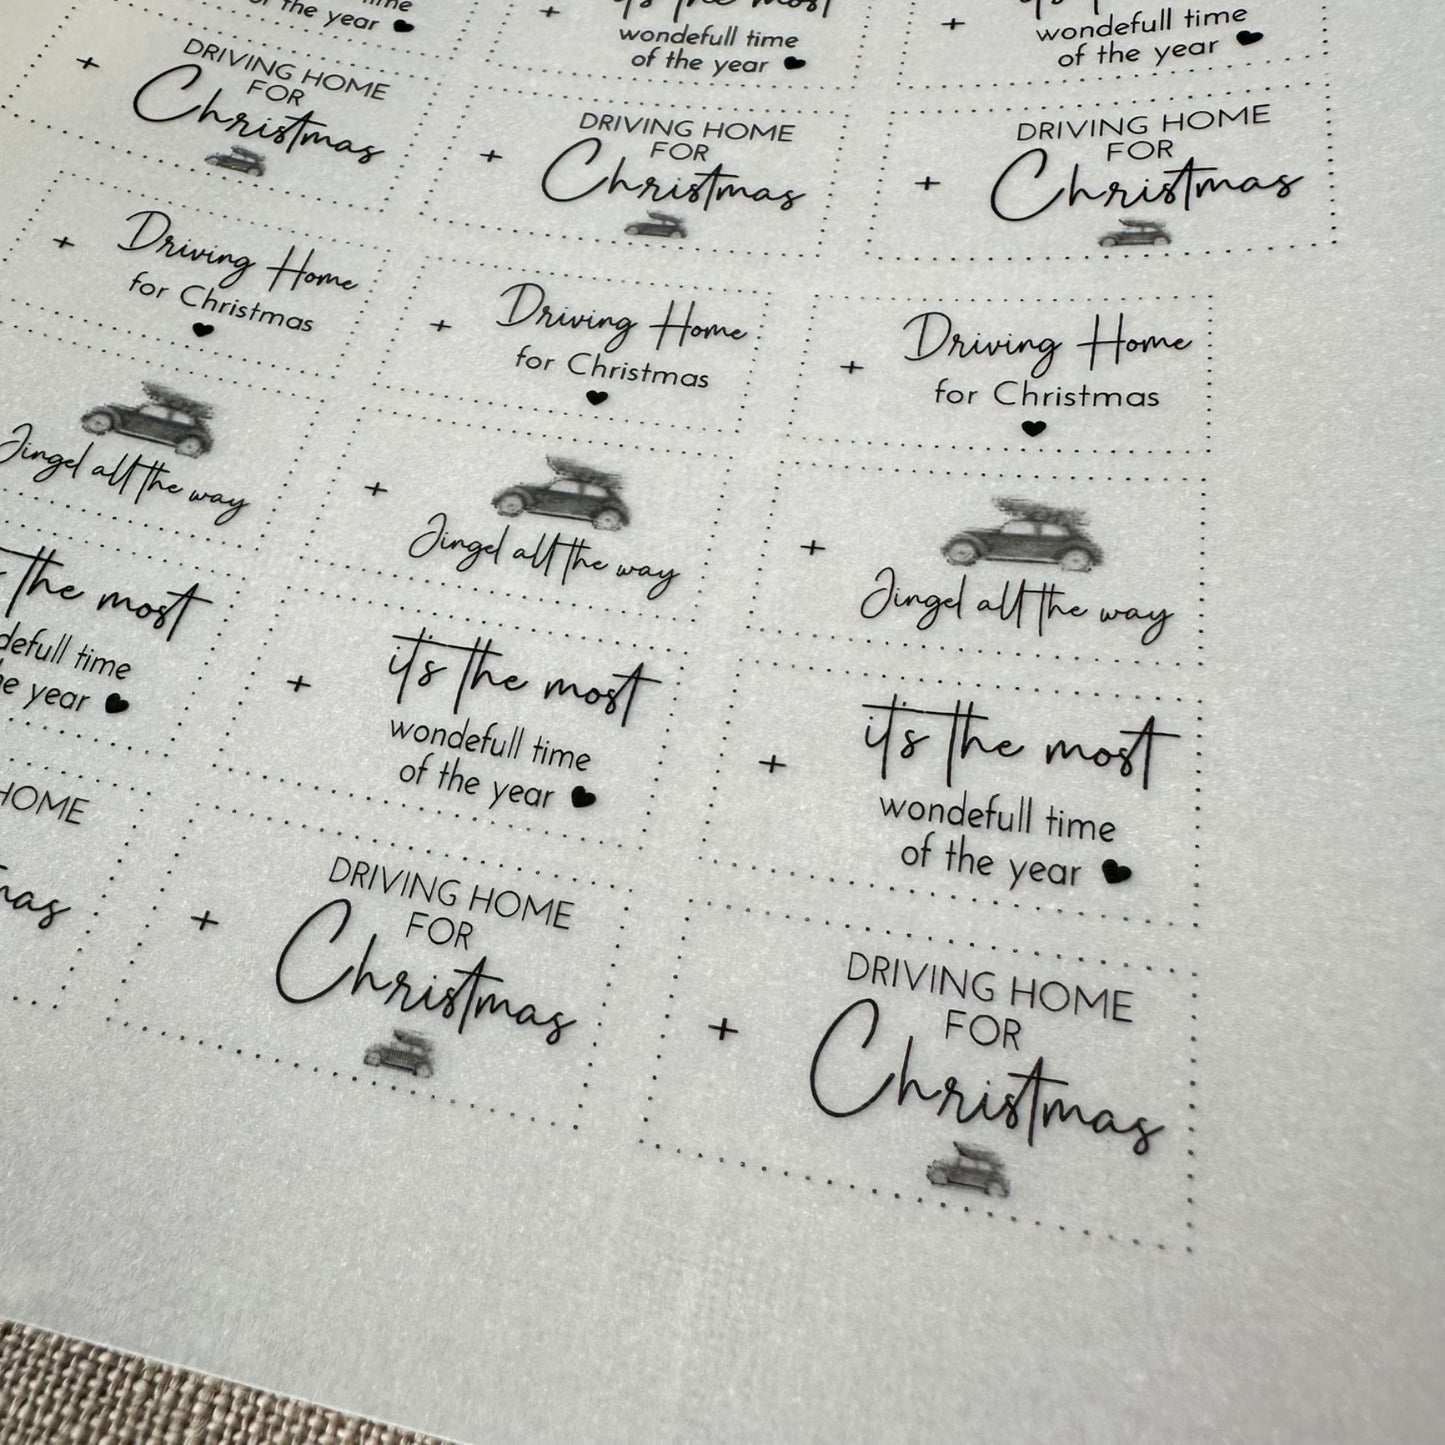 the year
it's the most
wondefull time
of the year
wondefull time
of the year
DRIVING HOME
FOR
Christmas
DRIVING HOME
FOR
Christmas
DRIVING HOME
FOR
Christmas
Driving Home
for Christmas
Driving Home
for Christmas
Driving Home
for Christmas
Jingel all the way
Jingel all the way
Jingel all the way
the most
time
year
it's the most
wondefull time
of the year
it's the most
wondefull time
of the year
HOME
DRIVING HOME
FOR
Christmas
DRIVING HOME
FOR
Christmas